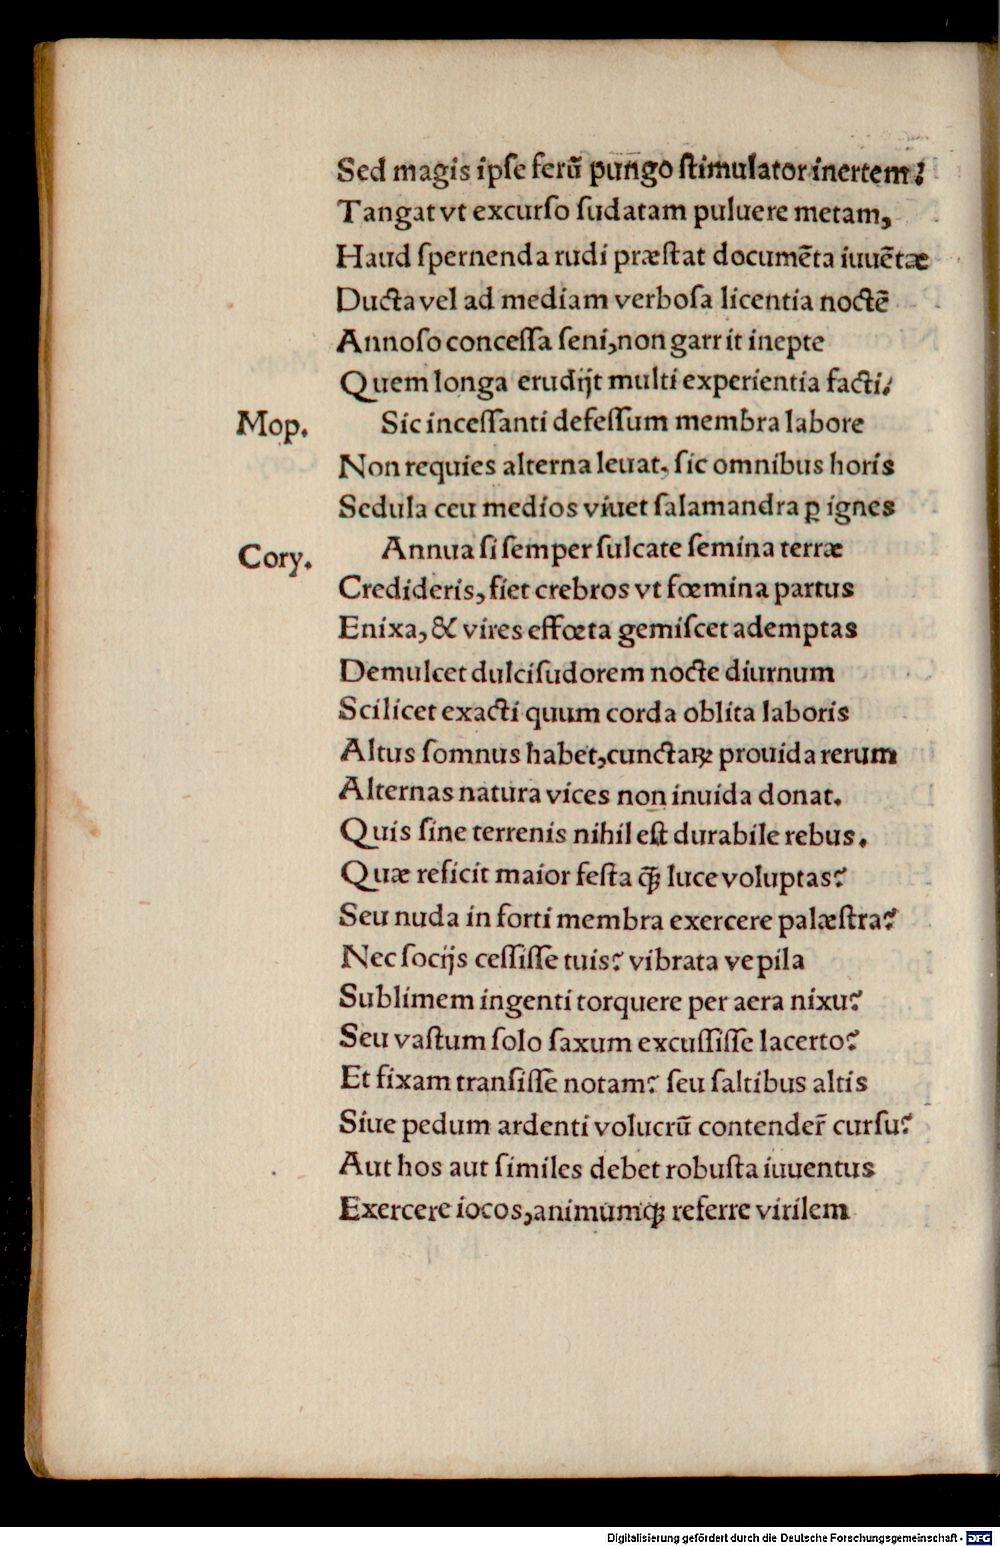 Sed magis ipſe ferũ pungo ſtimulator inertem?
Tangat vt excurſo ſudatam puluere metam,
Haud ſpernenda rudi præſtat documẽta iuuẽtæ
Ducta vel ad mediam verboſa licentia noctẽ
Annoſo conceſſa ſeni, non garrit inepte
Quem longa erudijt multi experientia facti.
Mop. Sic inceſſanti defeſſum membra labore
Non requies alterna leuat, ſic omnibus horis
Sedula ceu medios viuet ſalamandra ꝑ ignes
Cory. Annua ſi ſemper ſulcate ſemina terræ
Credideris, fiet crebros vt fœmina partus
Enixa, & vires effœta gemiſcet ademptas
Demulcet dulci ſudorem nocte diurnum
Scilicet exacti quum corda oblita laboris
Altus ſomnus habet, cunctaꝝ prouida rerum
Alternas natura vices non inuida donat.
Quis ſine terrenis nihil eſt durabile rebus.
Quæ reficit maior feſta q̃ꝫ luce voluptas?
Seu nuda in forti membra exercere palæſtra?
Nec ſocijs ceſſiſſe tuis? vibrata ve pila
Sublimem ingenti torquere per aera nixu?
Seu vaſtum ſolo ſaxum excuſſiſſe lacerto?
Et fixam tranſiſſe notam? ſeu ſaltibus altis
Siue pedum ardenti volucrũ contender̃ curſu?
Aut hos aut ſimiles debet robuſta iuuentus
Exercere iocos, animumqꝫ referre virilem
Digitalisierung gefördert durch die Deutsche Forschungsgemeinschaft - DFG